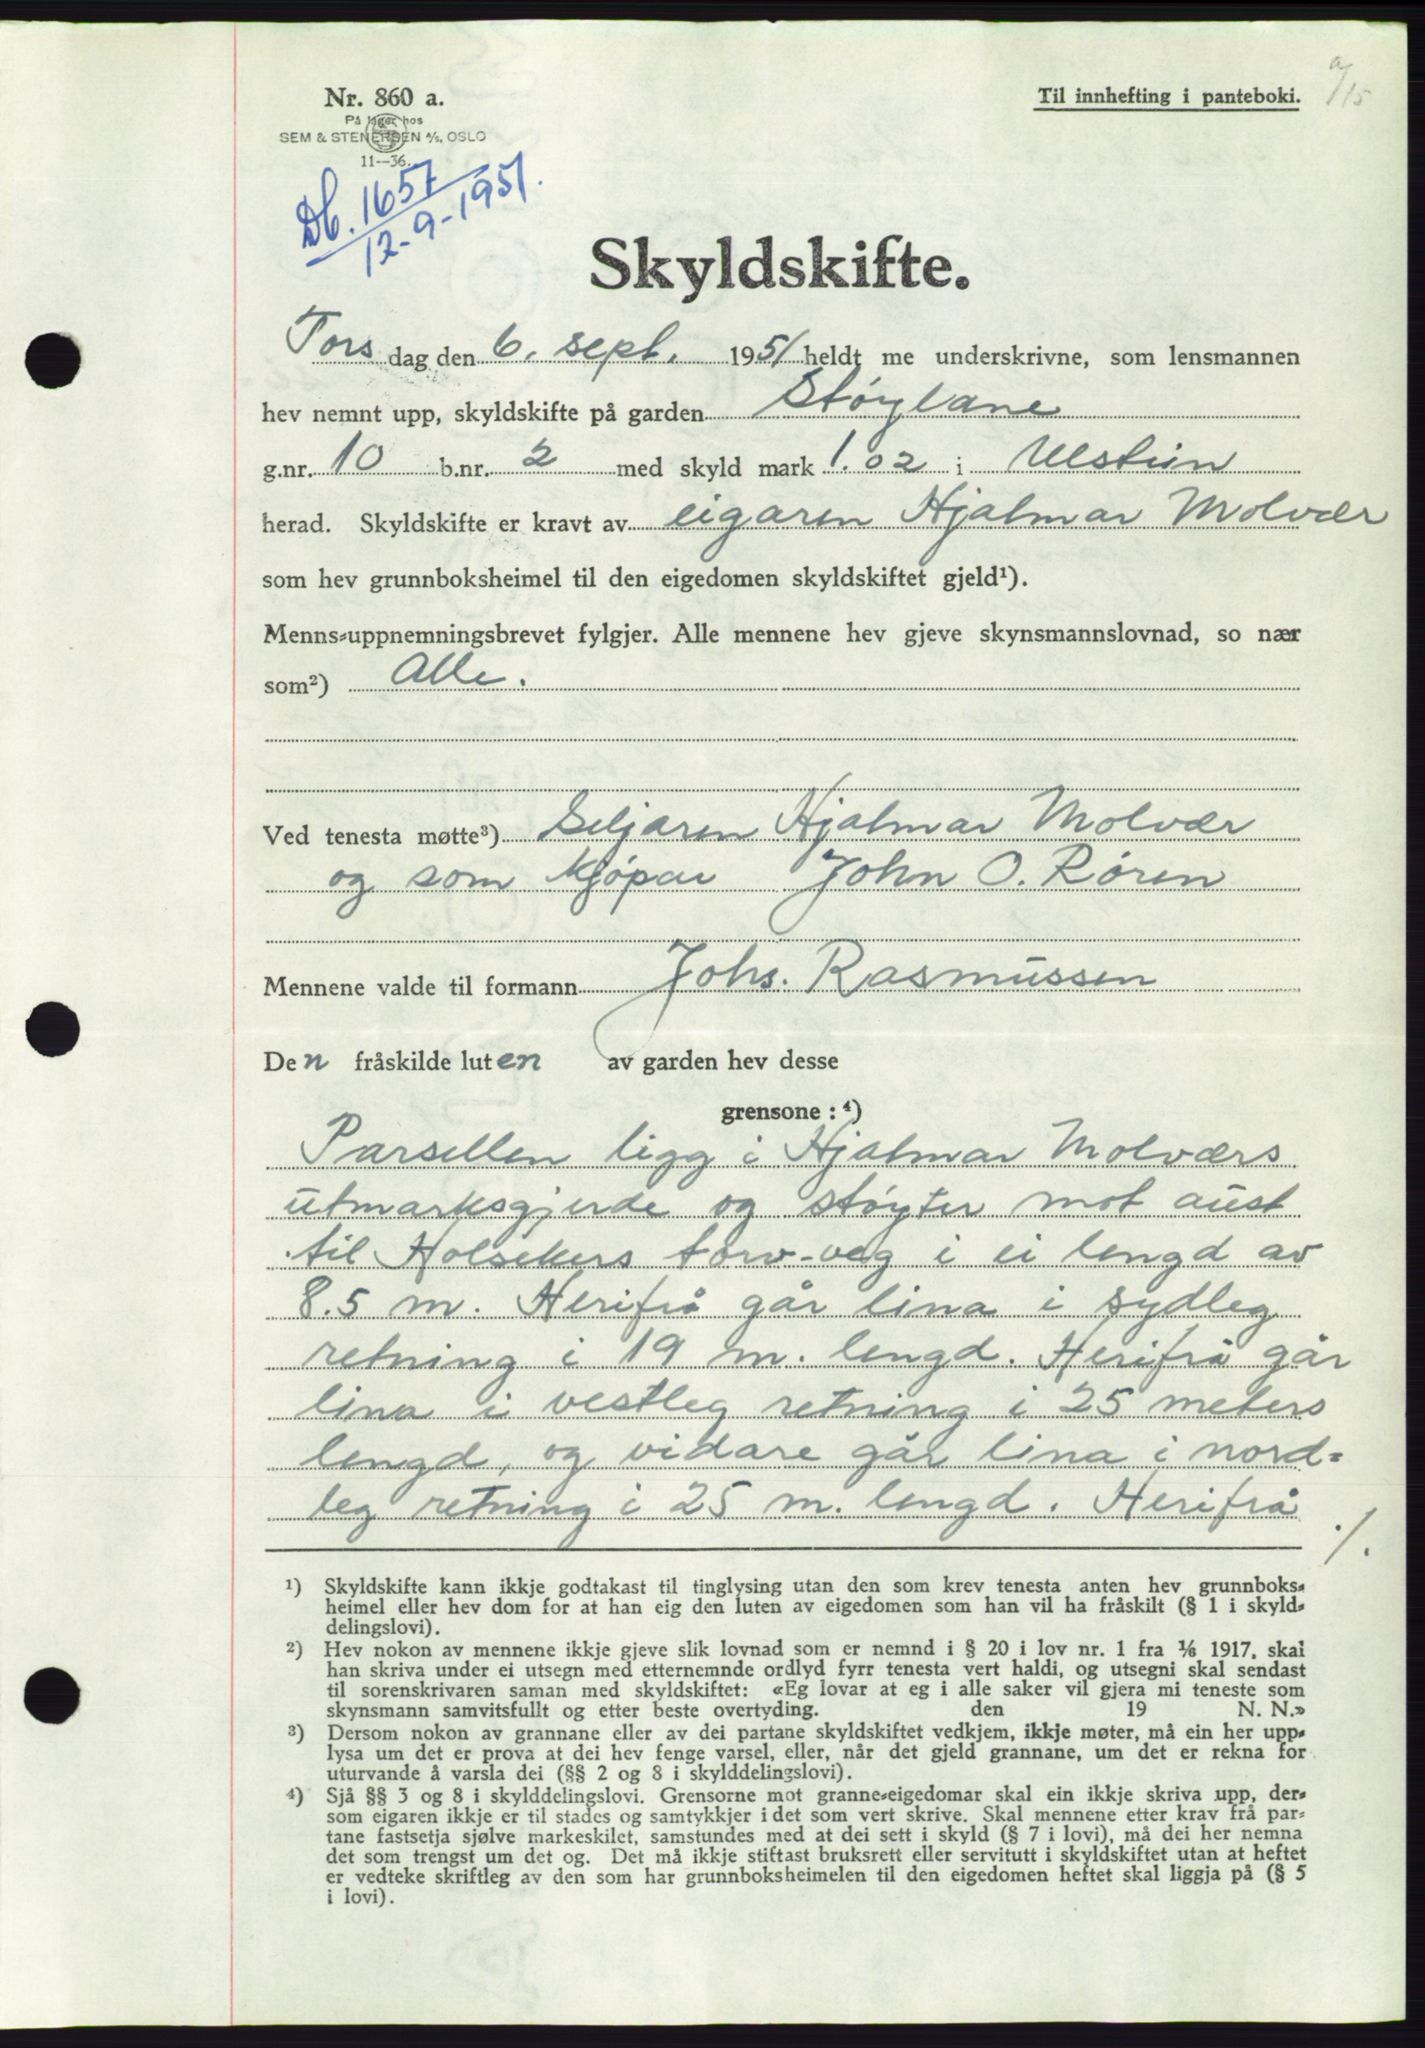 a/15
Nr. 860 a.
Til innhefting i panteboki.
På lager hos
SEM & STENERSEN A/S, OSLO
11--36.
Db. 1657
12-9-1951.
Skyldskifte.
Tors dag den 6. sept. 1951 heldt me underskrivne, som lensmannen
hev nemnt upp, skyldskifte på garden Støylane
g.nr. 10 b.nr. 2 med skyld mark 1.02 i Ulstein
herad. Skyldskifte er kravt av eigaren Hjalmar Molvær
som hev grunnboksheimel til den eigedomen skyldskiftet gjeld¹).
Menns-uppnemningsbrevet fylgjer. Alle mennene hev gjeve skynsmannslovnad, so nær
som²) Alle.
Ved tenesta møtte³) Seljaren Hjalmar Molvær
og som kjøpar John O. Røren
Mennene valde til formann Johs. Rasmussen
Den fråskilde luten av garden hev desse
grensone : ⁴)
Parsellen ligg i Hjalmar Molværs
utmarksgjerde og støyter mot aust
til Holsekers torv-veg i ei lengd av
8.5 m. Herifrå går lina i sydleg
retning i 19 m. lengd. Herifrå går
lina i vestleg retning i 25 meters
lengd, og vidare går lina i nord=
leg retning i 25 m. lengd. Herifrå
./.
¹) Skyldskifte kann ikkje godtakast til tinglysing utan den som krev tenesta anten hev grunnboks-
heimel eller hev dom for at han eig den luten av eigedomen som han vil ha fråskilt (§ 1 i skyld-
delingslovi).
²) Hev nokon av mennene ikkje gjeve slik lovnad som er nemnd i § 20 i lov nr. 1 fra 1/6 1917, skal
han skriva under ei utsegn med etternemnde ordlyd fyrr tenesta vert haldi, og utsegni skal sendast
til sorenskrivaren saman med skyldskiftet: «Eg lovar at eg i alle saker vil gjera mi teneste som
skynsmann samvitsfullt og etter beste overtyding. den 19 N. N.»
³) Dersom nokon av grannane eller av dei partane skyldskiftet vedkjem, ikkje møter, må ein her upp-
lysa um det er prova at dei hev fenge varsel, eller, når det gjeld grannane, um det er rekna for
uturvande å varsla dei (§§ 2 og 8 i skylddelingslovi).
⁴) Sjå §§ 3 og 8 i skylddelingslovi. Grensorne mot granne-eigedomar skal ein ikkje skriva upp, der-
som eigaren ikkje er til stades og samtykkjer i det som vert skrive. Skal mennene etter krav frå par-
tane fastsetja sjølve markeskilet, samstundes med at dei sett i skyld (§ 7 i lovi), må dei her nemna
det som trengst um det og. Det må ikkje stiftast bruksrett eller servitutt i skyldskiftet utan at heftet
er vedteke skriftleg av den som har grunnboksheimelen til den eigedomen heftet skal liggja på (§ 5
i lovi).